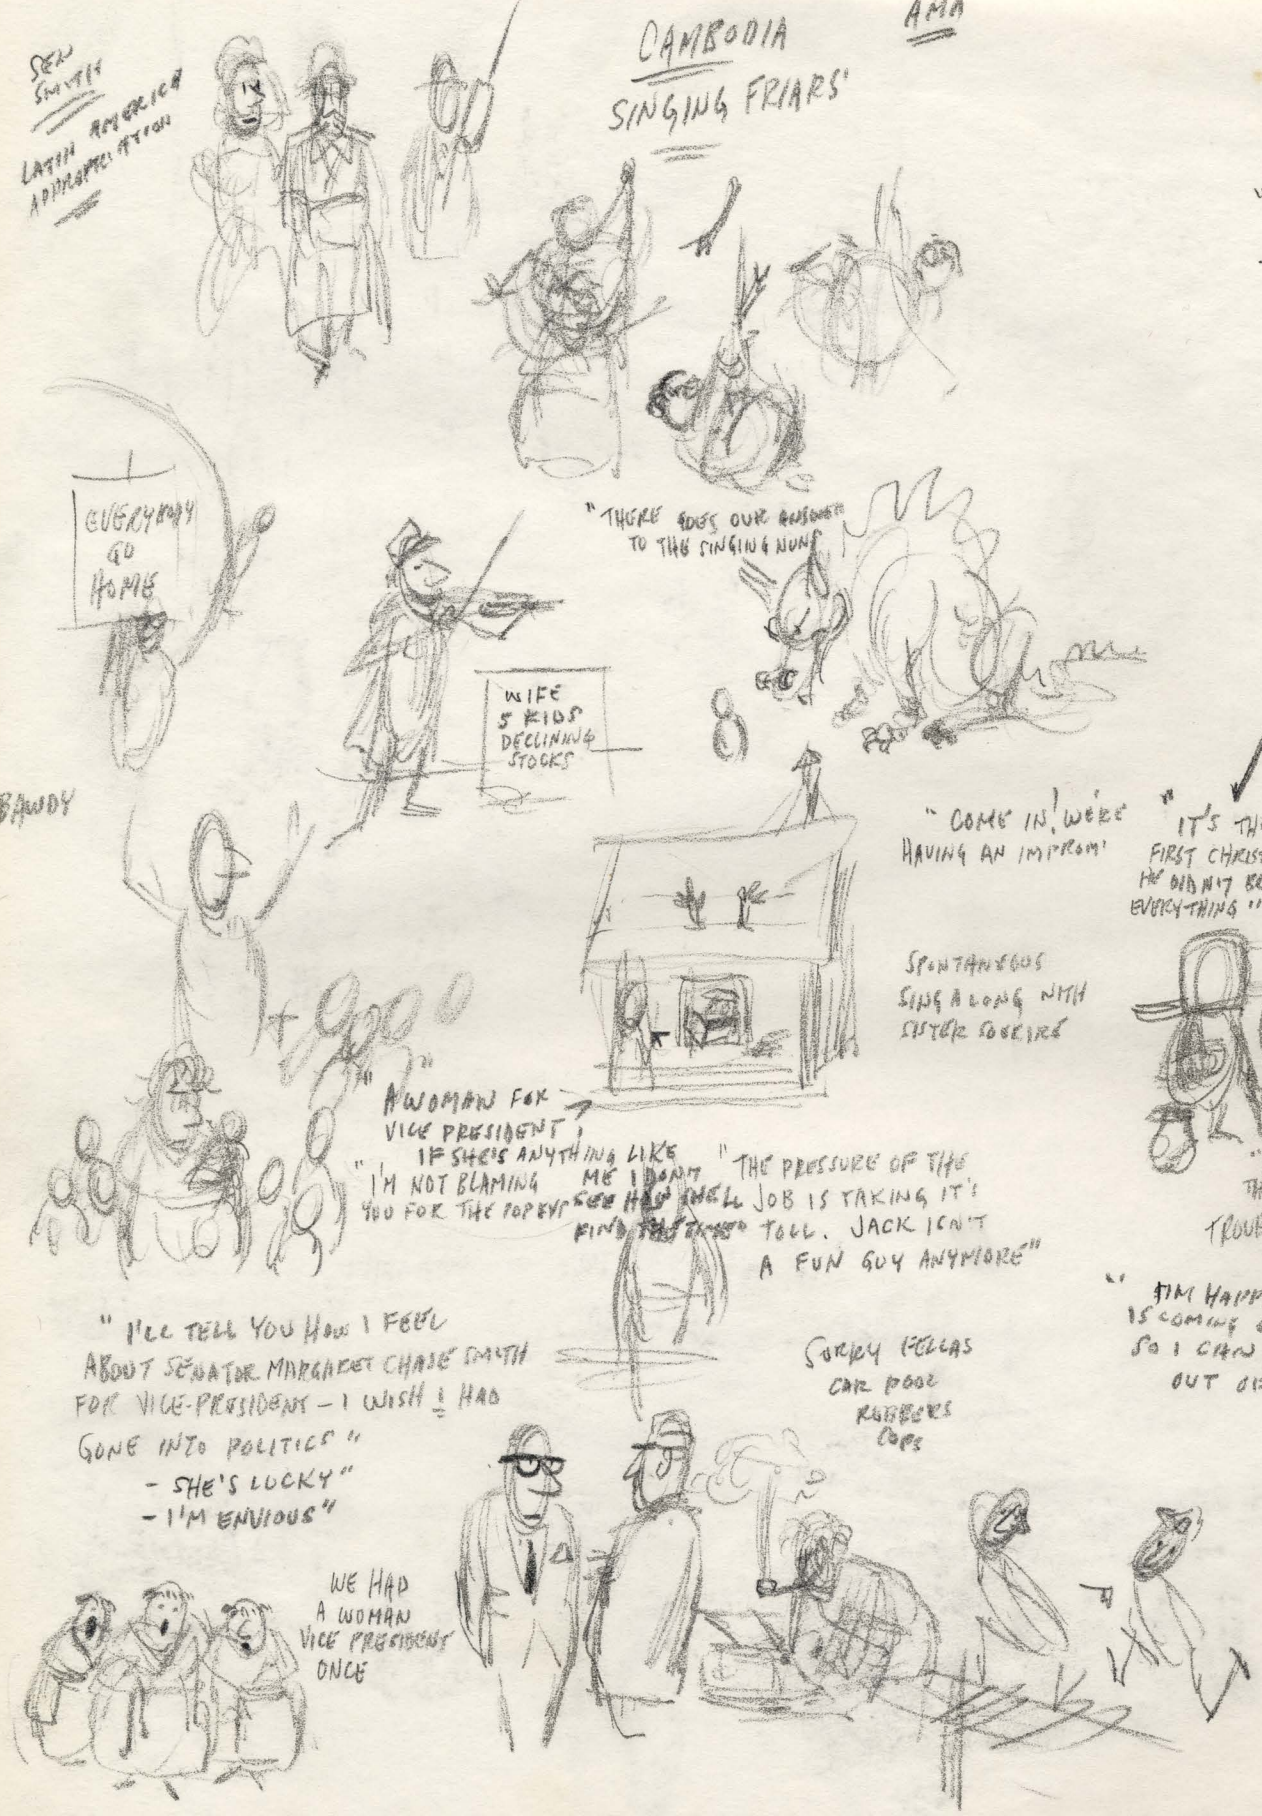 SEN
SMITH
LATIN AMERICA
APPROPRIATION
CAMBODIA
SINGING FRIARS'
AMA
EVERYBODY
GO
HOME
"THERE GOES OUR ANSWER
TO THE SINGING NUNS
WIFE
5 KIDS
DECLINING
STOCKS
BAWDY
"COME IN! WE'RE
HAVING AN IMPROM'
"IT'S TH
FIRST CHRIST
HE DIDN'T BR
EVERYTHING"
SPONTANEOUS
SING ALONG WITH
SISTER
"A WOMAN FOR
VICE PRESIDENT"
IF SHE'S ANYTHING LIKE
ME I DON'T
SEE HOW SHE'LL
FIND THE TIME"
"I'M NOT BLAMING
YOU FOR THE
"THE PRESSURE OF THE
JOB IS TAKING IT'S
TOLL. JACK ISN'T
A FUN GUY ANYMORE"
"
TH
TROUB
"I'LL TELL YOU HOW I FEEL
ABOUT SENATOR MARGARET CHASE SMITH
FOR VICE-PRESIDENT - I WISH I HAD
GONE INTO POLITICS"
- SHE'S LUCKY"
- I'M ENVIOUS"
SORRY FELLAS
CAR POOL
ROBBERS
COPS
" HAPP
IS COMING
SO I CAN
OUT OF
WE HAD
A WOMAN
VICE PRESIDENT
ONCE